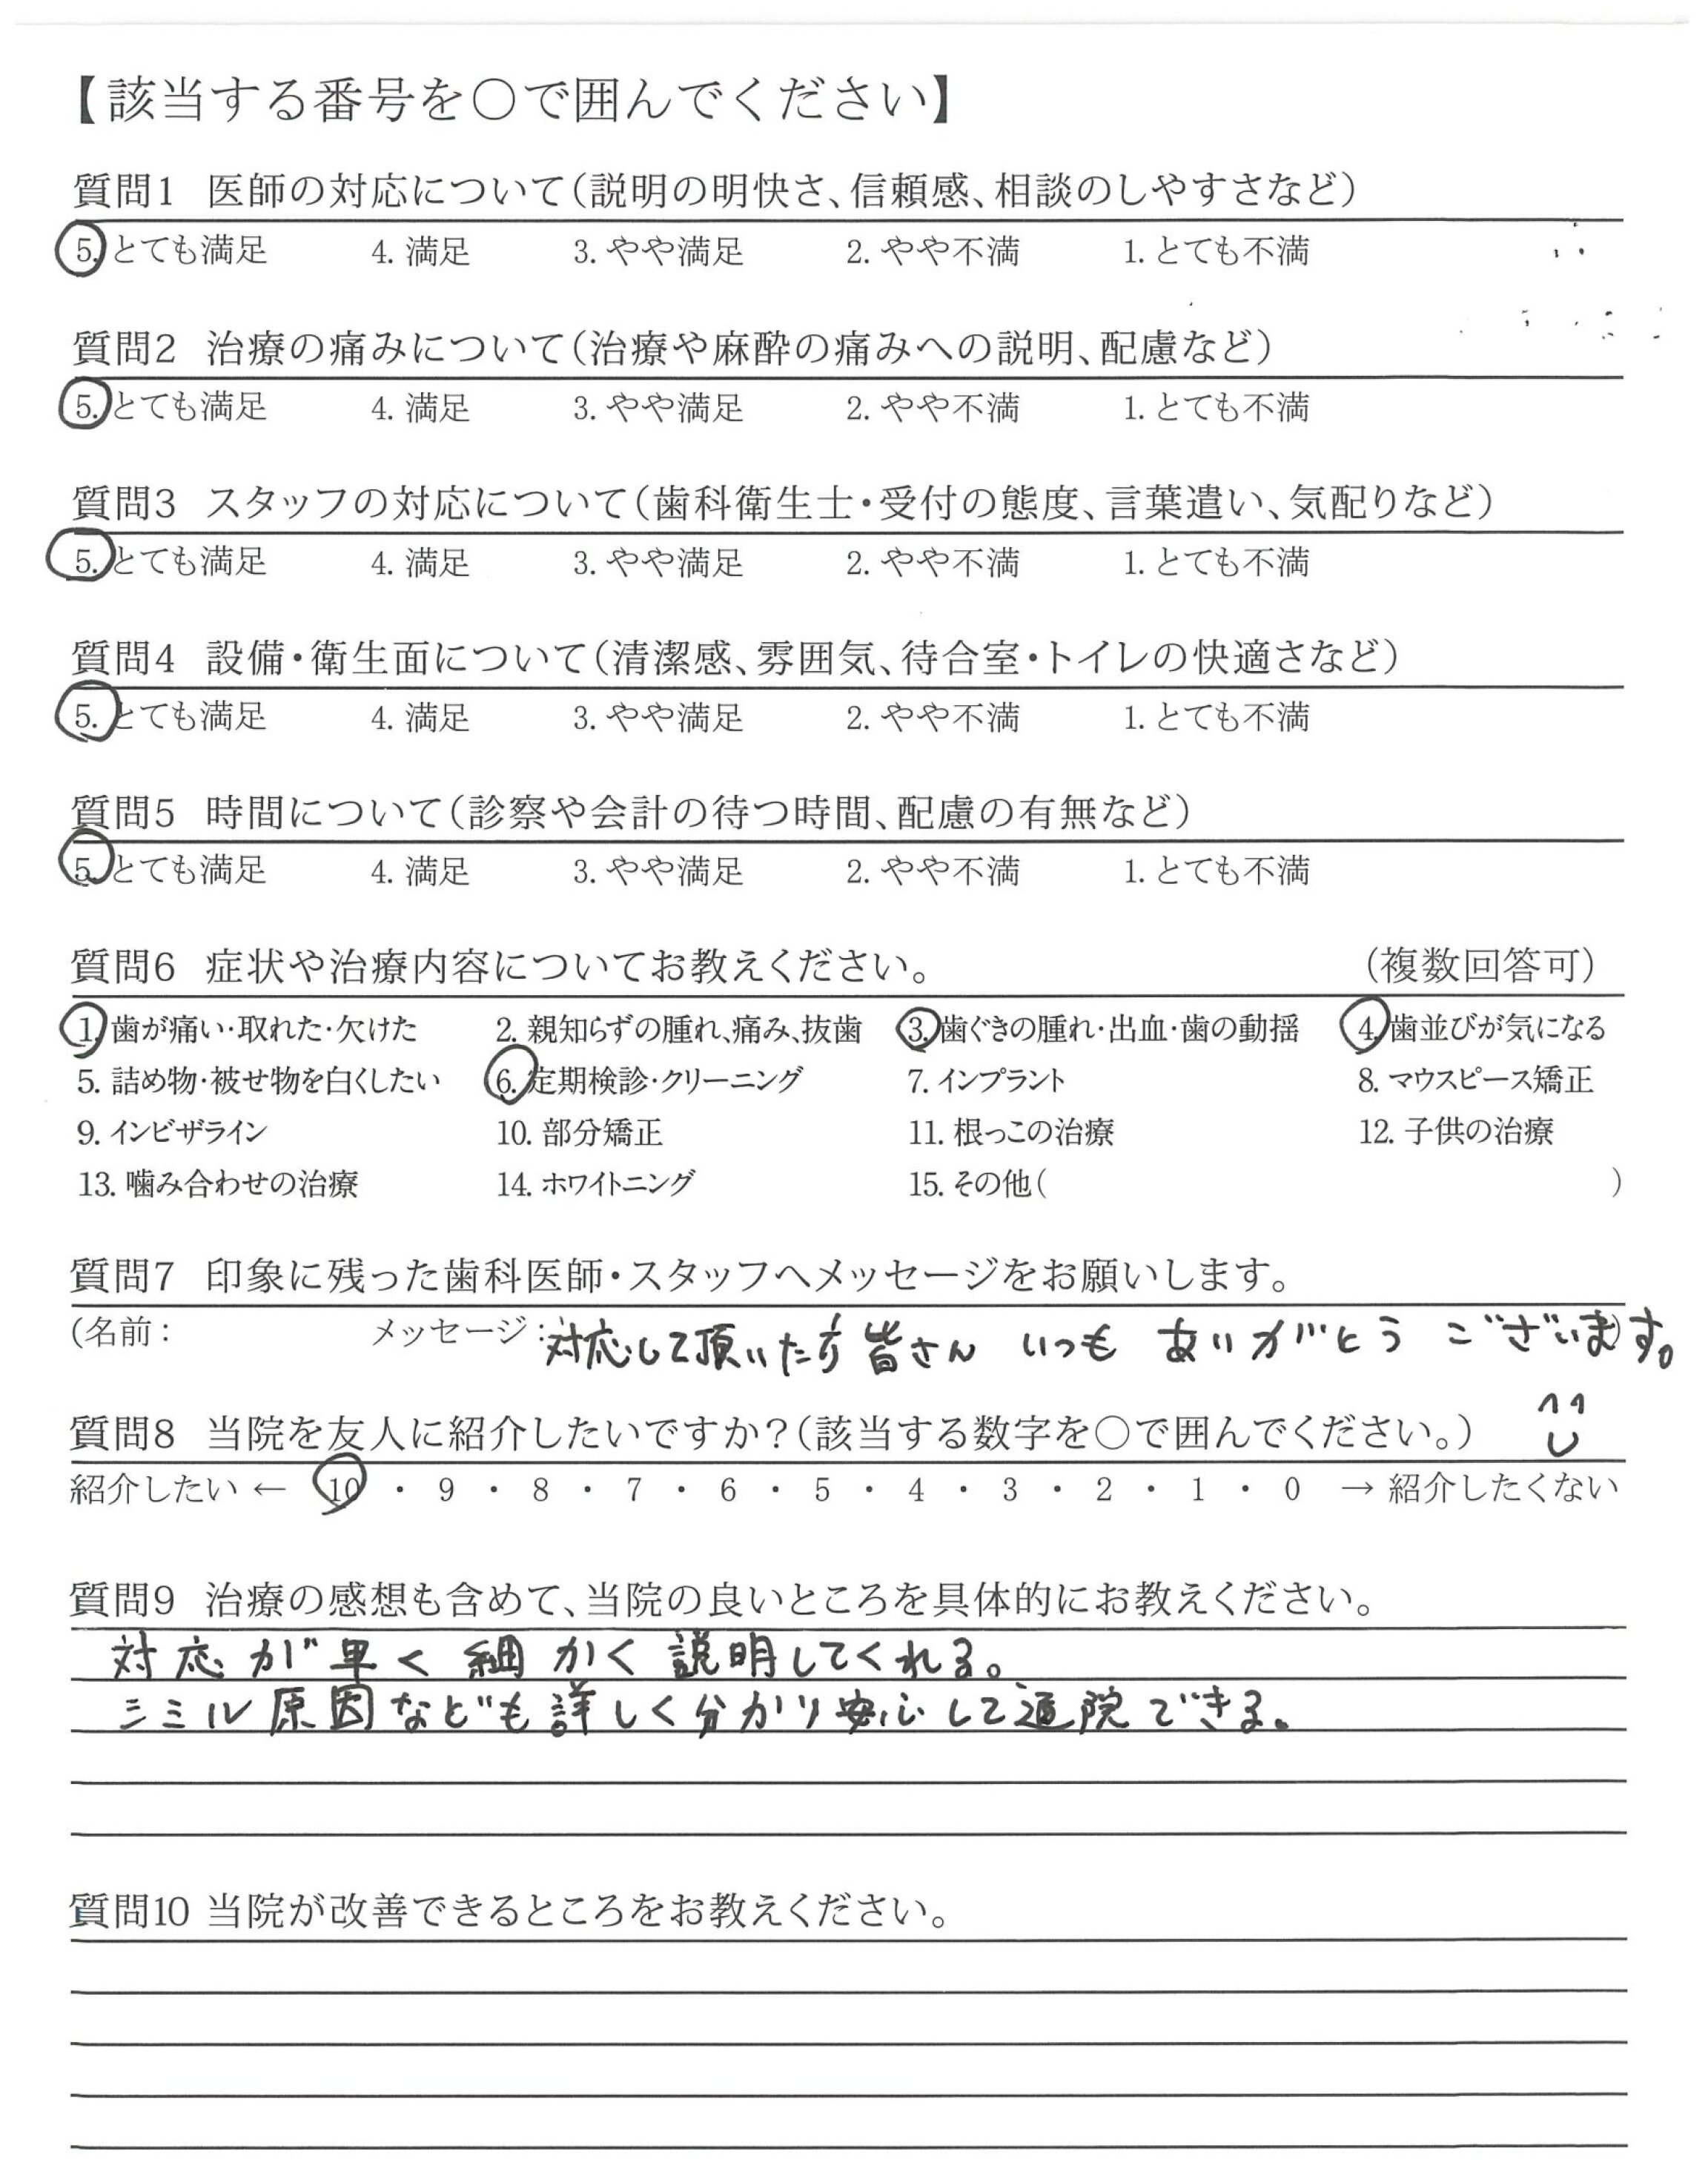 【該当する番号を○で囲んでください】
質問1 医師の対応について（説明の明快さ、信頼感、相談のしやすさなど）
5. とても満足 4. 満足 3. やや満足 2. やや不満 1. とても不満
質問2 治療の痛みについて（治療や麻酔の痛みへの説明、配慮など）
5. とても満足 4. 満足 3. やや満足 2. やや不満 1. とても不満
質問3 スタッフの対応について（歯科衛生士・受付の態度、言葉遣い、気配りなど）
5. とても満足 4. 満足 3. やや満足 2. やや不満 1. とても不満
質問4 設備・衛生面について（清潔感、雰囲気、待合室・トイレの快適さなど）
5. とても満足 4. 満足 3. やや満足 2. やや不満 1. とても不満
質問5 時間について（診察や会計の待つ時間、配慮の有無など）
5. とても満足 4. 満足 3. やや満足 2. やや不満 1. とても不満
質問6 症状や治療内容についてお教えください。 （複数回答可）
1. 歯が痛い・取れた・欠けた 2. 親知らずの腫れ、痛み、抜歯 3. 歯ぐきの腫れ・出血・歯の動揺 4. 歯並びが気になる
5. 詰め物・被せ物を白くしたい 6. 定期検診・クリーニング 7. インプラント 8. マウスピース矯正
9. インビザライン 10. 部分矯正 11. 根っこの治療 12. 子供の治療
13. 噛み合わせの治療 14. ホワイトニング 15. その他（ ）
質問7 印象に残った歯科医師・スタッフへメッセージをお願いします。
（名前： メッセージ：対応して頂いた方皆さん いつも ありがとう ございます。）
質問8 当院を友人に紹介したいですか？（該当する数字を○で囲んでください。）
紹介したい ← 10 ・ 9 ・ 8 ・ 7 ・ 6 ・ 5 ・ 4 ・ 3 ・ 2 ・ 1 ・ 0 → 紹介したくない
質問9 治療の感想も含めて、当院の良いところを具体的にお教えください。
対応が早く細かく説明してくれる。
シミル原因なども詳しく分かり安心して通院できる。
質問10 当院が改善できるところをお教えください。